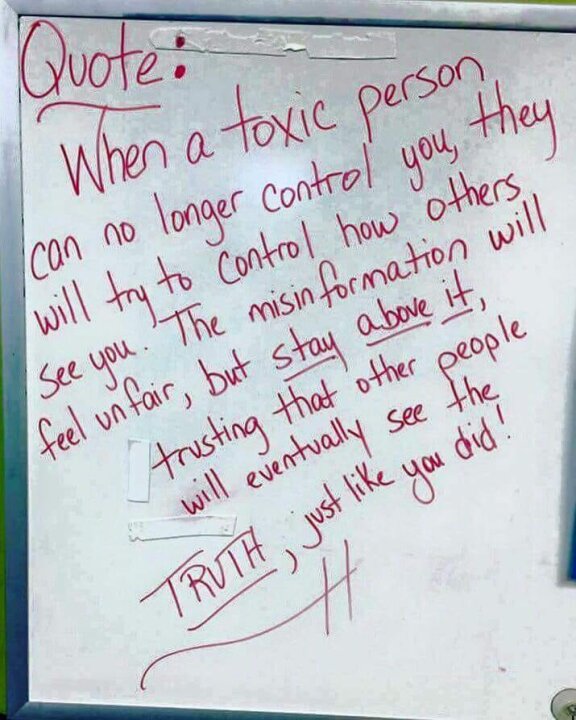 Quote:
When a toxic person
can no longer control you, they
will try to control how others
see you. The misinformation will
feel unfair, but stay above it,
trusting that other people
will eventually see the
TRUTH, just like you did!